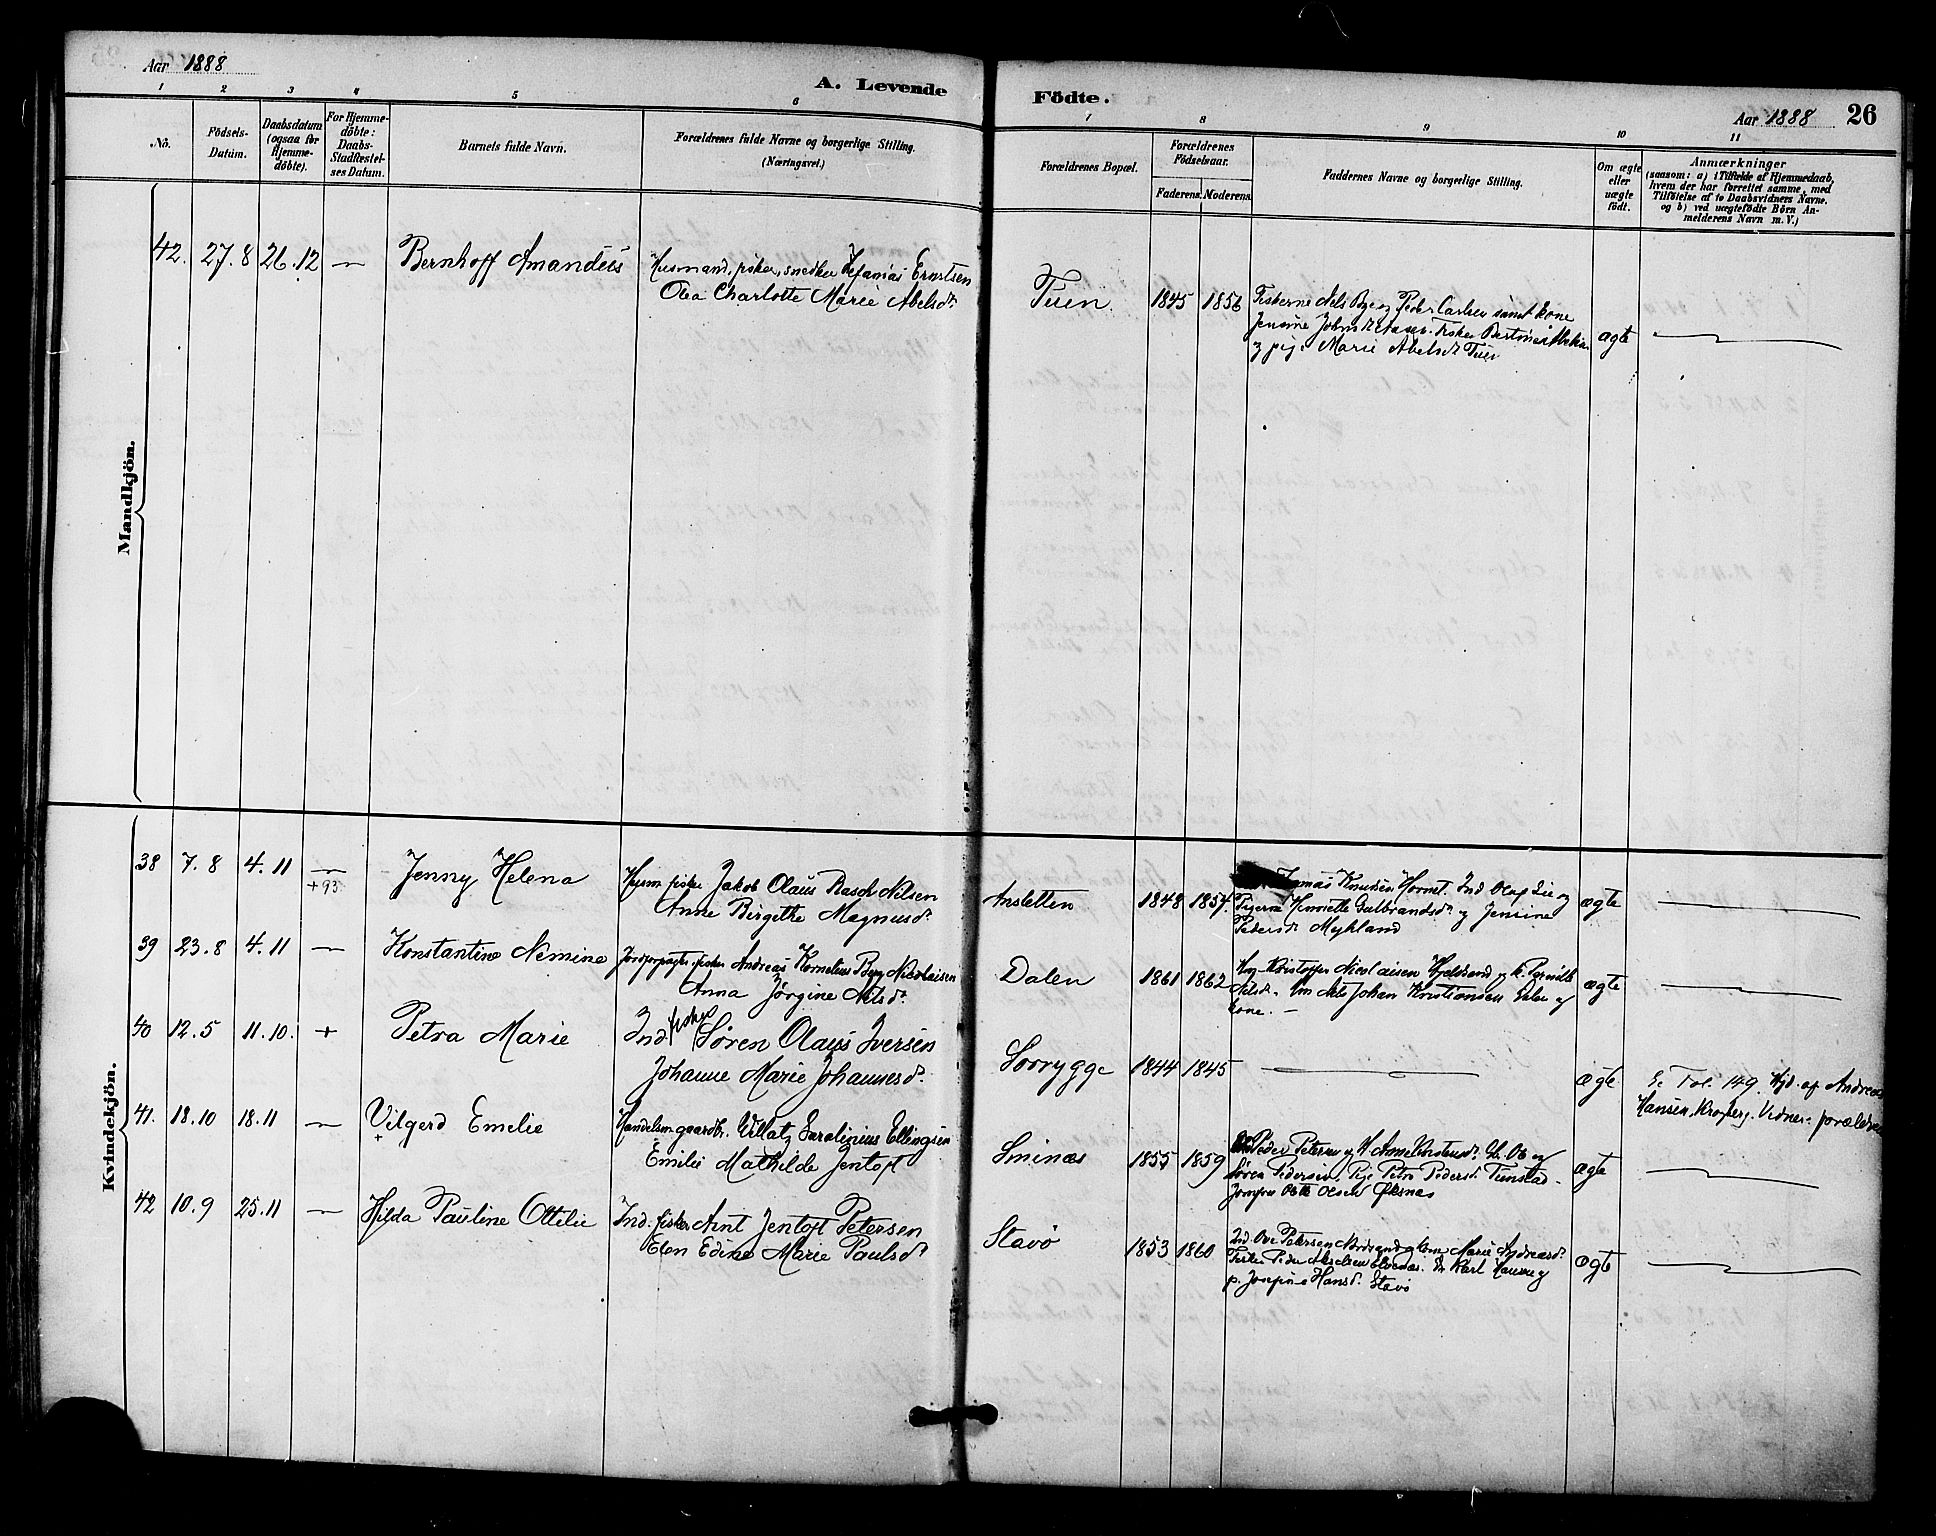 Aar 1888
A. Levende
Födte.
Aar 1888
26
1 2 3 4 5 6 7 8 9 10 11
No.
Födsels-
Datum.
Daabsdatum
(ogsaa for
Hjemme-
döbte).
For Hjemme-
döbte:
Daabs-
Stadfæstel-
ses Datum.
Barnets fulde Navn.
Forældrenes fulde Navne og borgerlige Stilling.
(Næringsvei.)
Forældrenes Bopæl.
Forældrenes
Födselsaar.
Faderens. Moderens.
Faddernes Navne og borgerlige Stilling.
Om ægte
eller
uægte
födt.
Anmærkninger
(saasom: a) i Tilfælde af Hjemmedaab,
hvem der har forrettet samme, med
Tilföielse af to Daabsvidners Navne.
og b) ved uægtefödte Börn An-
melderens Navn m. V.)
Mandkjön.
42. 27.8 26.12 — Bernhoff Amandeus
Husmand, fisker, snedker Zefanias Ernstsen
Olea Charlotte Marie Abelsdr
Tuen. 1845 1856
Fiskerne Nels Bye og Peder Carlsen samt kone
Jensine
og pige Marie Abelsdr Tuen
ægte
Kvindekjön.
38 7.8 4.11 —
+93
Jenny Helena
fisker Jakob Olaus Rasch Nilsen
Anne Birgitte Magnusdr
Ansletten 1848 1857.
Tomas Knudsen Hornet. Ind Olaf Lie og
Pigerne Henriette Gulbrandsdr og Jensine
Pedersdr Mykland
ægte
39 23.8 4.11 — Konstantine Nemine
Jordforpagter, fisker Andreas Kornelius Byg Nikolaisen
Anna Jørgine Nilsdr
Dalen 1861 1862
Kristoffer Nicolaisen Hjeldsand og k. Pernille
Nilsdr. Nils Johan Kristiansen Dalen og
kone. —
ægte
40 12.5 11.10. + Petra Marie
Ind. fisker Søren Olaus Iversen
Johanne Marie Johannesdr.
Sorrygge 1844 1845
ægte
Se Fol. 149. Hjd. af Andreas
Hansen, Kroberg. Vidner forældre
41. 18.10 18.11 — Vilgerd Emelie
+
Handelsm. gaardbr. Willatz Saralinius Ellingsen
Emilie Mathilde Jentoft
Sminæs 1855 1859
Peder Petersen og
Søren Pedersen, Pige Petra Pedersdr Tunstad.
Jomfru Olsen Øksnæs
ægte
42 10.9 25.11 — Hilda Pauline Ottelie
Ind. fisker Arnt Jentoft Petersen
Elen Edine Marie Paulsdr
Stavø 1853 1860
Ind. Ove Petersen Nordsand og kone Marie Andreasdr
Fisker Peder Karl Hansen og
p. Josefine Hansdr. Stavø
ægte